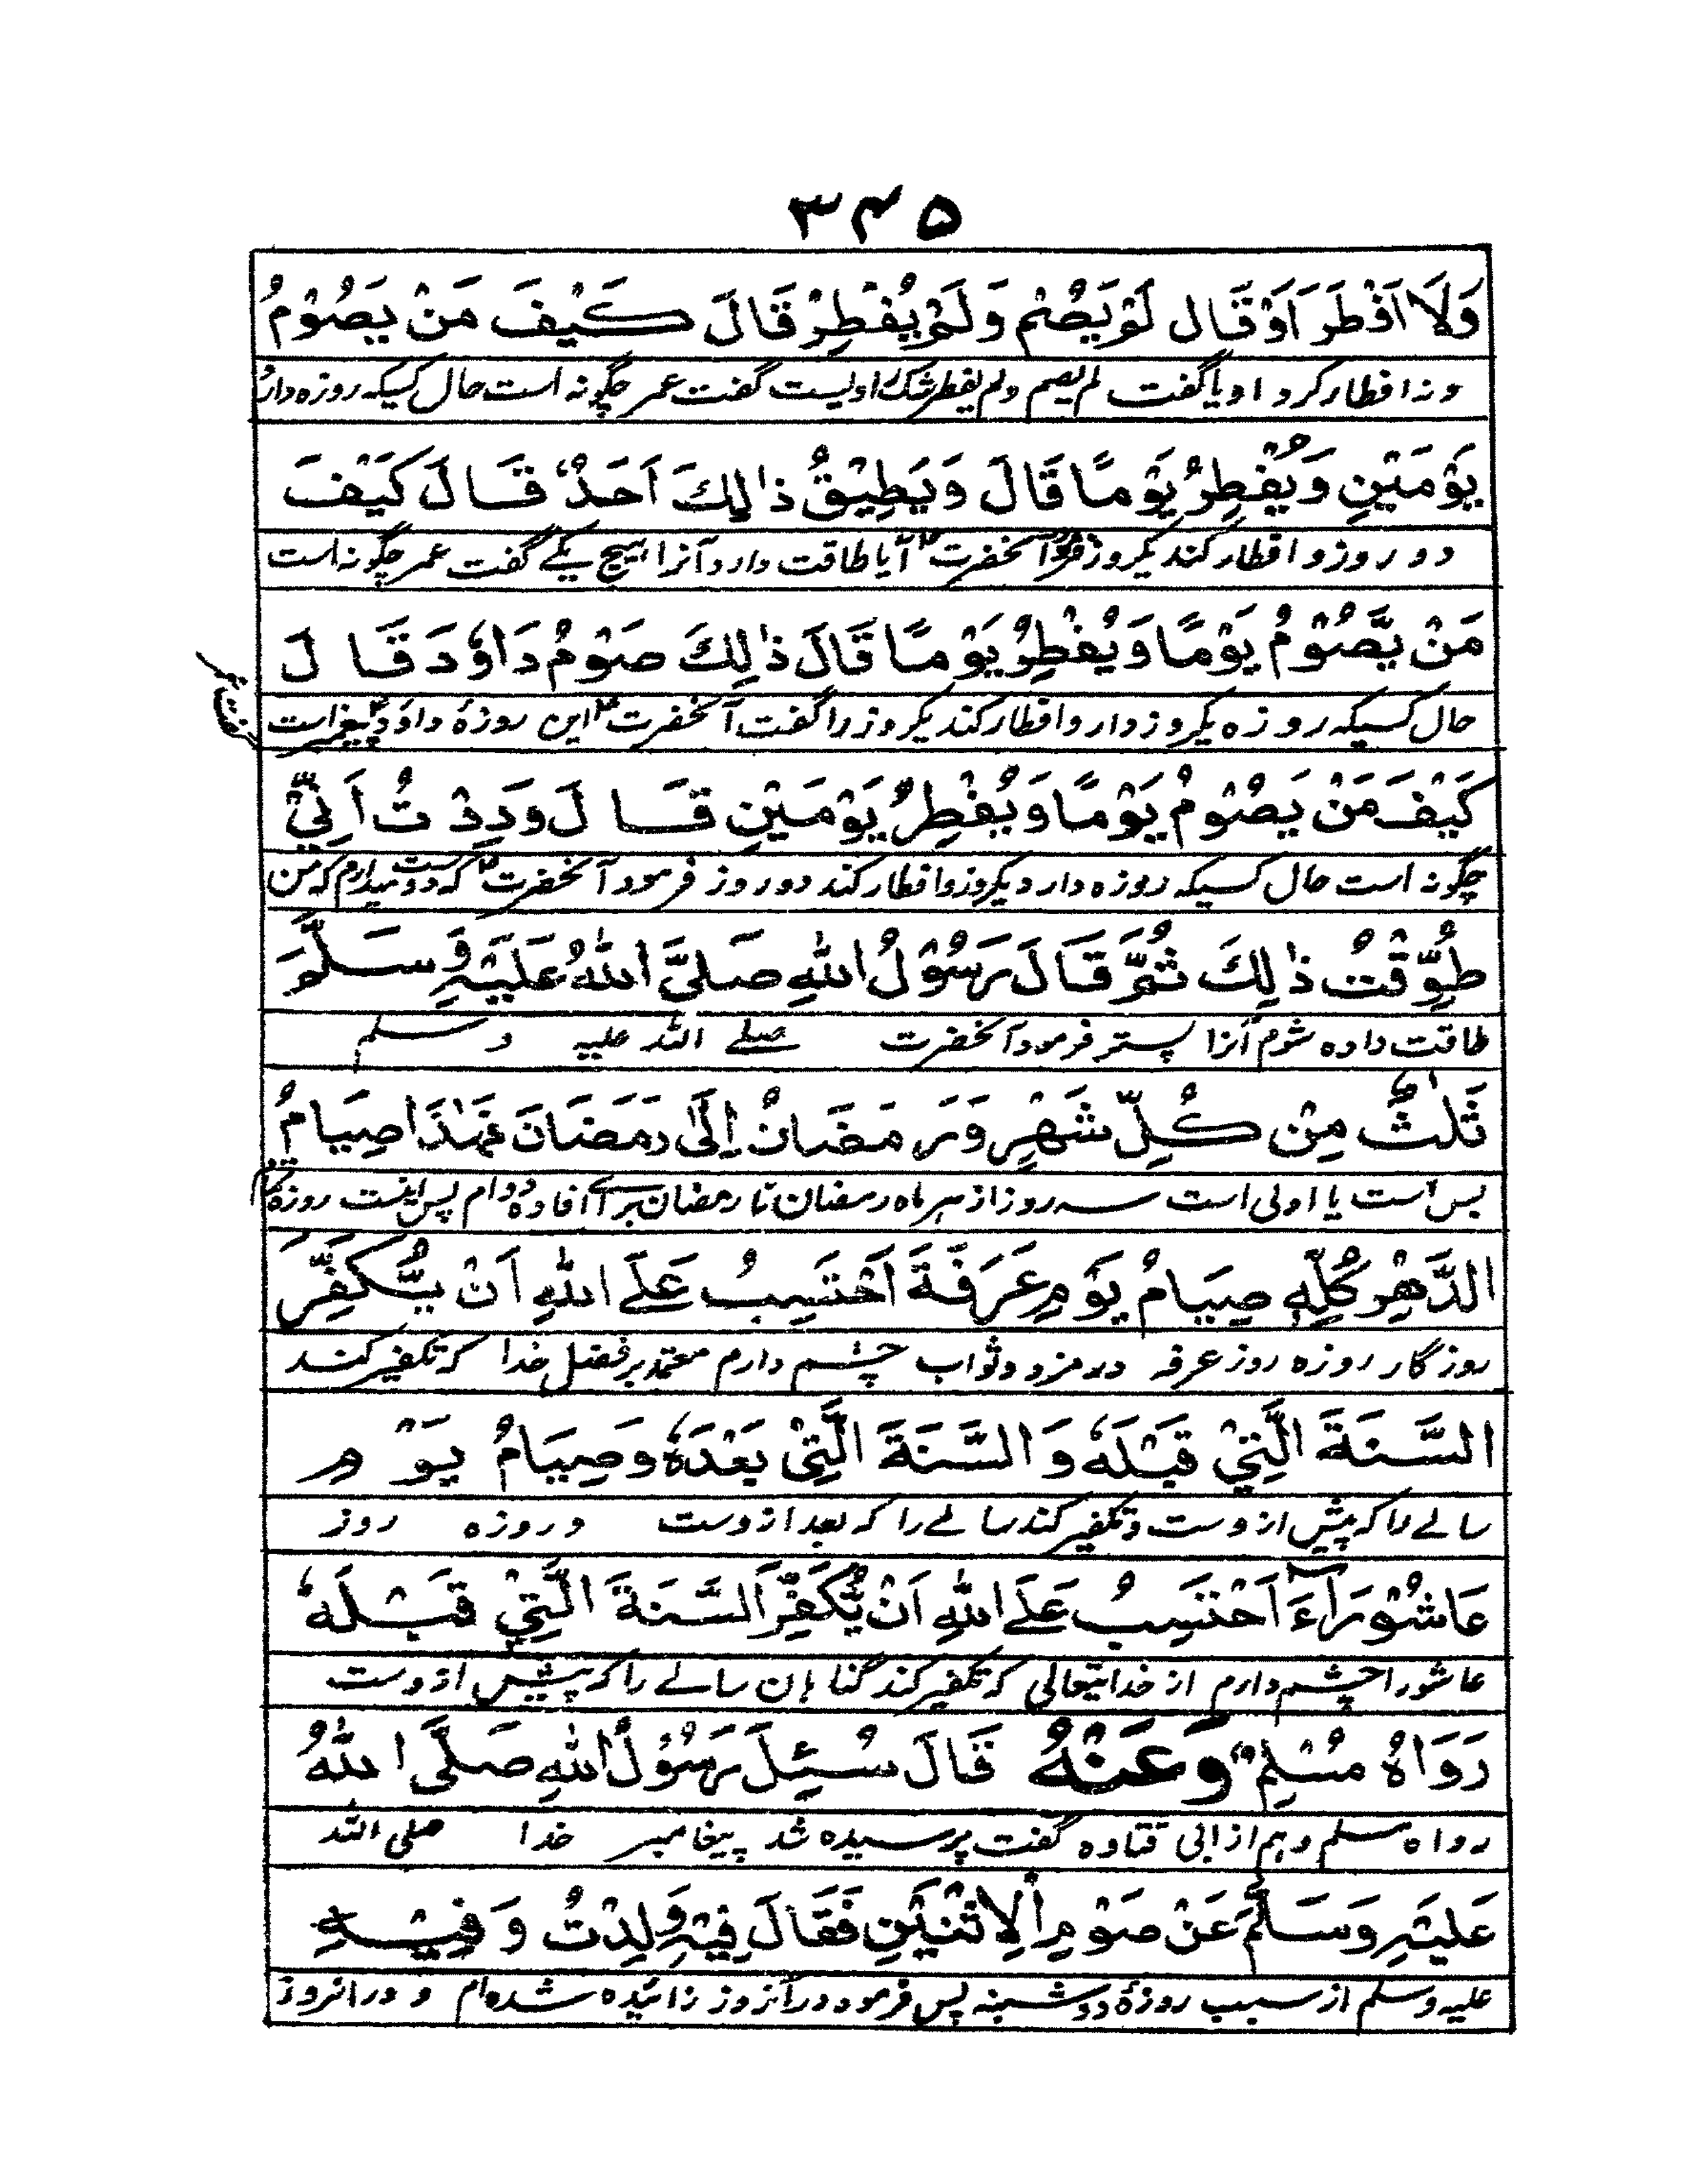 ۳۴۵
وَلَا اَفْطَرَ اَوْ قَالَ لَمْ يَصُمْ وَلَمْ يُفْطِرْ قَالَ كَيْفَ مَنْ يَصُوْمُ
ونہ افطار کرد او یا گفت لم یصم ولم یفطر شک راویست گفت عمر چگونہ است حال کسیکہ روزہ دارد
يَوْمَيْنِ وَيُفْطِرُ يَوْمًا قَالَ وَيَطِيْقُ ذٰلِكَ اَحَدٌ قَالَ كَيْفَ
دو روز و افطار کند یکروز فرمود آنحضرت آیا طاقت دارد آنرا ہیچ یکے گفت عمر چگونہ است
مَنْ يَّصُوْمُ يَوْمًا وَيُفْطِرُ يَوْمًا قَالَ ذٰلِكَ صَوْمُ دَاوٗدَ قَالَ
حال کسیکہ روزہ یکروز دار و افطار کند یکروز را گفت آنحضرت این روزۂ داؤد پیغمبر است
گفت عمر
كَيْفَ مَنْ يَصُوْمُ يَوْمًا وَيُفْطِرُ يَوْمَيْنِ قَالَ وَدِدْتُ اَنِّيْ
چگونہ است حال کسیکہ روزہ دارد یکروز و افطار کند دو روز فرمود آنحضرت کہ دوست میدارم کہ من
طُوِّقْتُ ذٰلِكَ ثُمَّ قَالَ رَسُوْلُ اللهِ صَلَّى اللهُ عَلَيْهِ وَسَلَّمَ
طاقت دادہ شوم آنرا پستر فرمود آنحضرت صلے اللہ علیہ وسلم
ثَلٰثٌ مِنْ كُلِّ شَهْرٍ وَرَمَضَانُ اِلٰى رَمَضَانَ فَهٰذَا صِيَامُ
بس است یا اولی است سہ روز از ہر ماہ رمضان تا رمضان برائے افادہ دوام پس اینست روزہ
الدَّهْرِ كُلِّهٖ صِيَامُ يَوْمِ عَرَفَةَ اَحْتَسِبُ عَلَى اللهِ اَنْ يُّكَفِّرَ
روزگار روزہ روز عرفہ در مزد و ثواب چشم دارم معتمد بر فضل خدا کہ تکفیر کند
السَّنَةَ الَّتِيْ قَبْلَهٗ وَالسَّنَةَ الَّتِيْ بَعْدَهٗ وَصِيَامُ يَوْمِ
سالے را کہ پیش ازوست و تکفیر کند سالے را کہ بعد ازوست و روزہ روز
عَاشُوْرَآءَ اَحْتَسِبُ عَلَى اللهِ اَنْ يُّكَفِّرَ السَّنَةَ الَّتِيْ قَبْلَهٗ
عاشورا چشم دارم از خدایتعالی کہ تکفیر کند گناہان سالے را کہ پیش ازوست
رَوَاهُ مُسْلِمٌ وَعَنْهُ قَالَ سُئِلَ رَسُوْلُ اللهِ صَلَّى اللهُ
رواہ مسلم وہم از ابی قتادہ گفت پرسیدہ شد پیغامبر خدا صلی اللہ
عَلَيْهِ وَسَلَّمَ عَنْ صَوْمِ الْاِثْنَيْنِ فَقَالَ فِيْهِ وُلِدْتُ وَفِيْهِ
علیہ وسلم از سبب روزۂ دوشنبہ پس فرمود در آنروز زائیدہ شدہ ام و در انروز